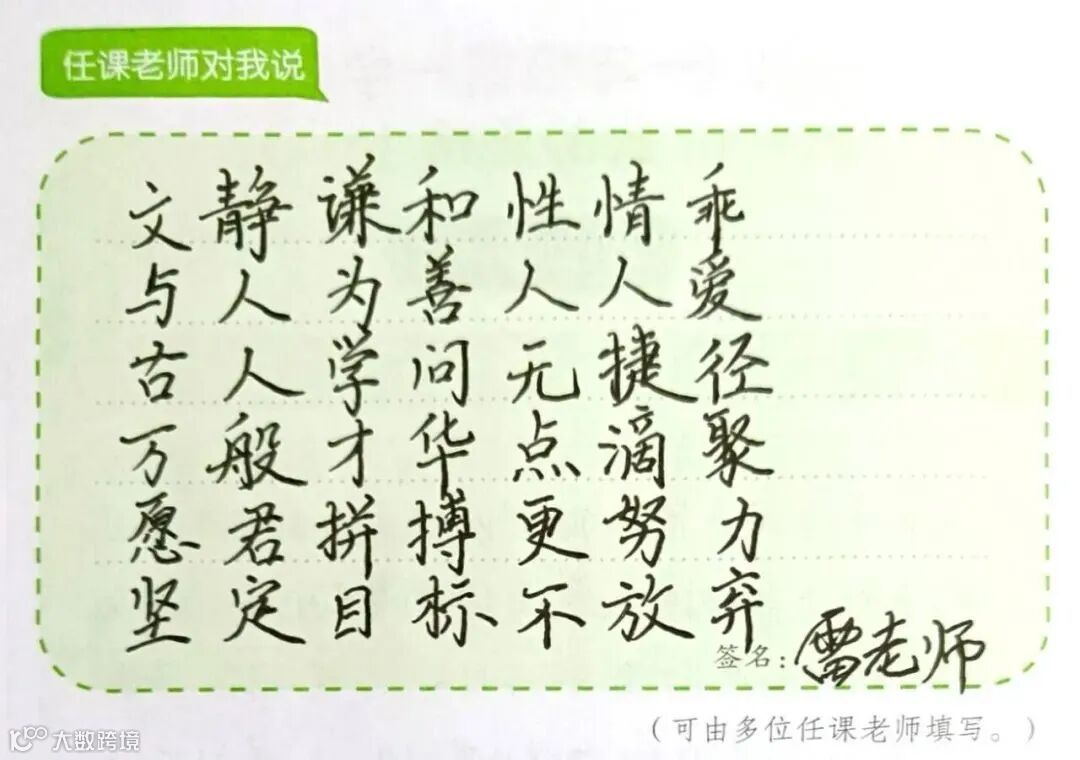 任课老师对我说
文静谦和性情乖
与人为善人人爱
古人学问无捷径
万般才华点滴聚
愿君拼搏更努力
坚定目标不放弃
签名：雷老师
（可由多位任课老师填写。）
大数跨境